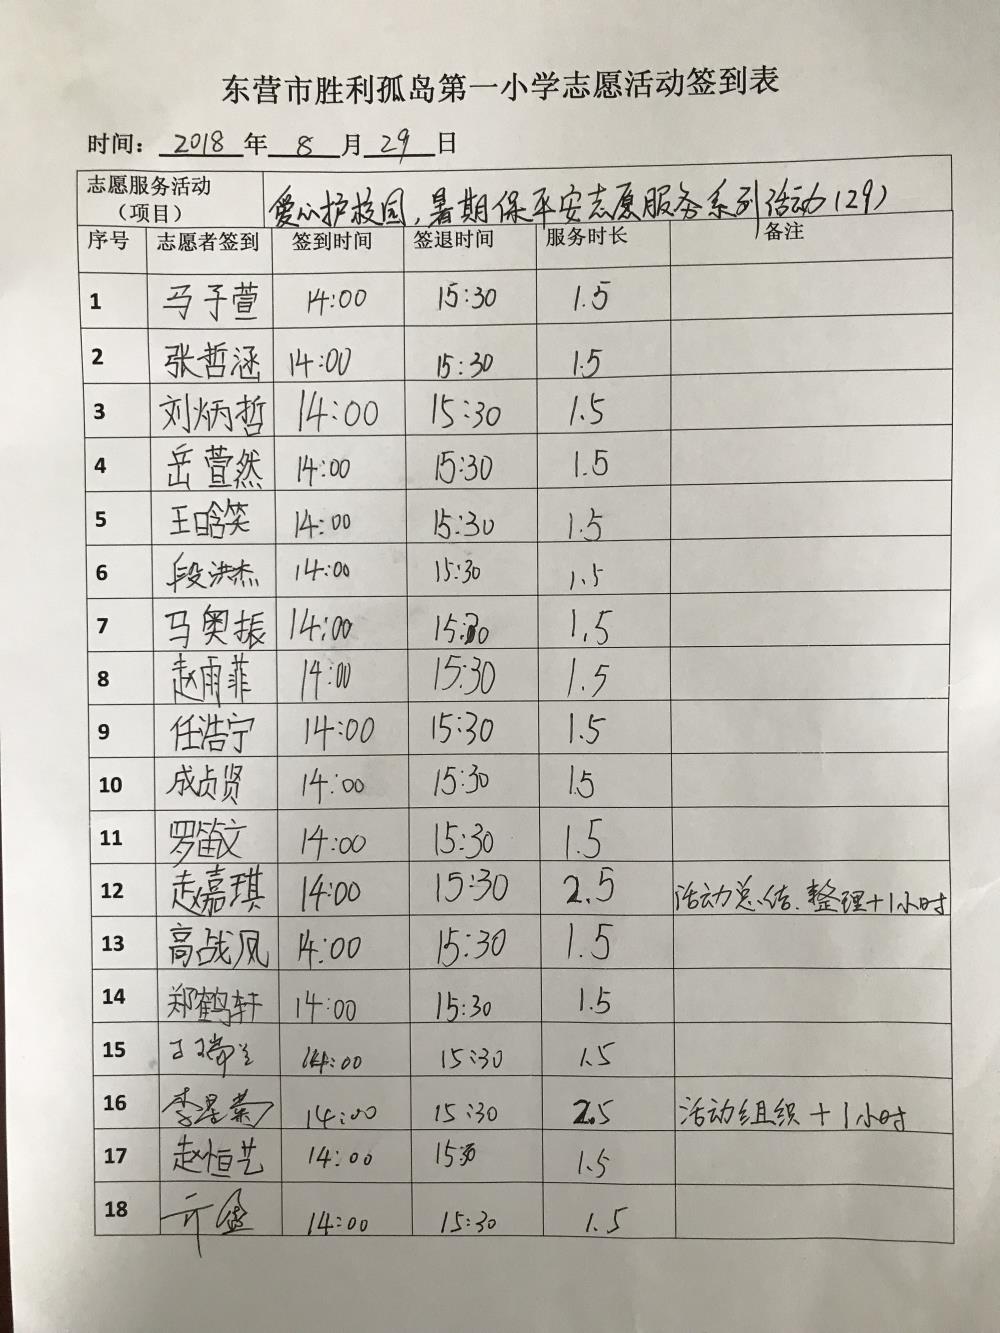 东营市胜利孤岛第一小学志愿活动签到表
时间： 2018 年 8 月 29 日
志愿服务活动（项目） 爱心护校园，暑期保平安志愿服务系列活动（29）
序号 志愿者签到 签到时间 签退时间 服务时长 备注
1 马子萱 14:00 15:30 1.5
2 张哲涵 14:00 15:30 1.5
3 刘炳哲 14:00 15:30 1.5
4 岳萱然 14:00 15:30 1.5
5 王晗笑 14:00 15:30 1.5
6 段洪杰 14:00 15:30 1.5
7 马奥振 14:00 15:30 1.5
8 赵雨菲 14:00 15:30 1.5
9 任浩宁 14:00 15:30 1.5
10 成贞贤 14:00 15:30 1.5
11 罗笛文 14:00 15:30 1.5
12 赵嘉琪 14:00 15:30 2.5 活动总结、整理+1小时
13 高战风 14:00 15:30 1.5
14 郑鹤轩 14:00 15:30 1.5
15 14:00 15:30 1.5
16 14:00 15:30 2.5 活动组织+1小时
17 赵恒艺 14:00 15:30 1.5
18 14:00 15:30 1.5